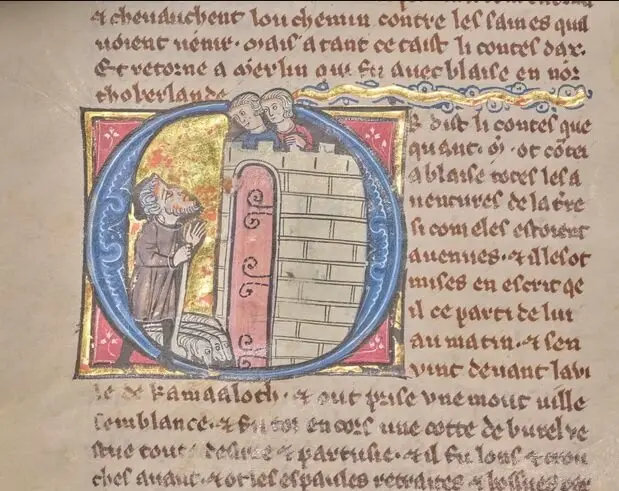 & cheuauchent lou chemin contre les saines quil
uoient uenir · Mais atant ce taist li contes dax ·
Et retorne a Merlin qui fu auec blaise en nor
thoberlande
R dist li contes que
quant · M · ot conte
a blaise totes les a
uentures de la tre
si com eles estoient
auenues · & il les ot
mises en escrit qe
il ce parti de lui
au matin · & sen
uint deuant la vi
le de Kamaaloch · & out prise une mout uille
semblance · & fu en cors une cotte de burel ve
stue toute desiree & partusie · & il fu lons & crou
ches auant · & ot les espaules retraites &